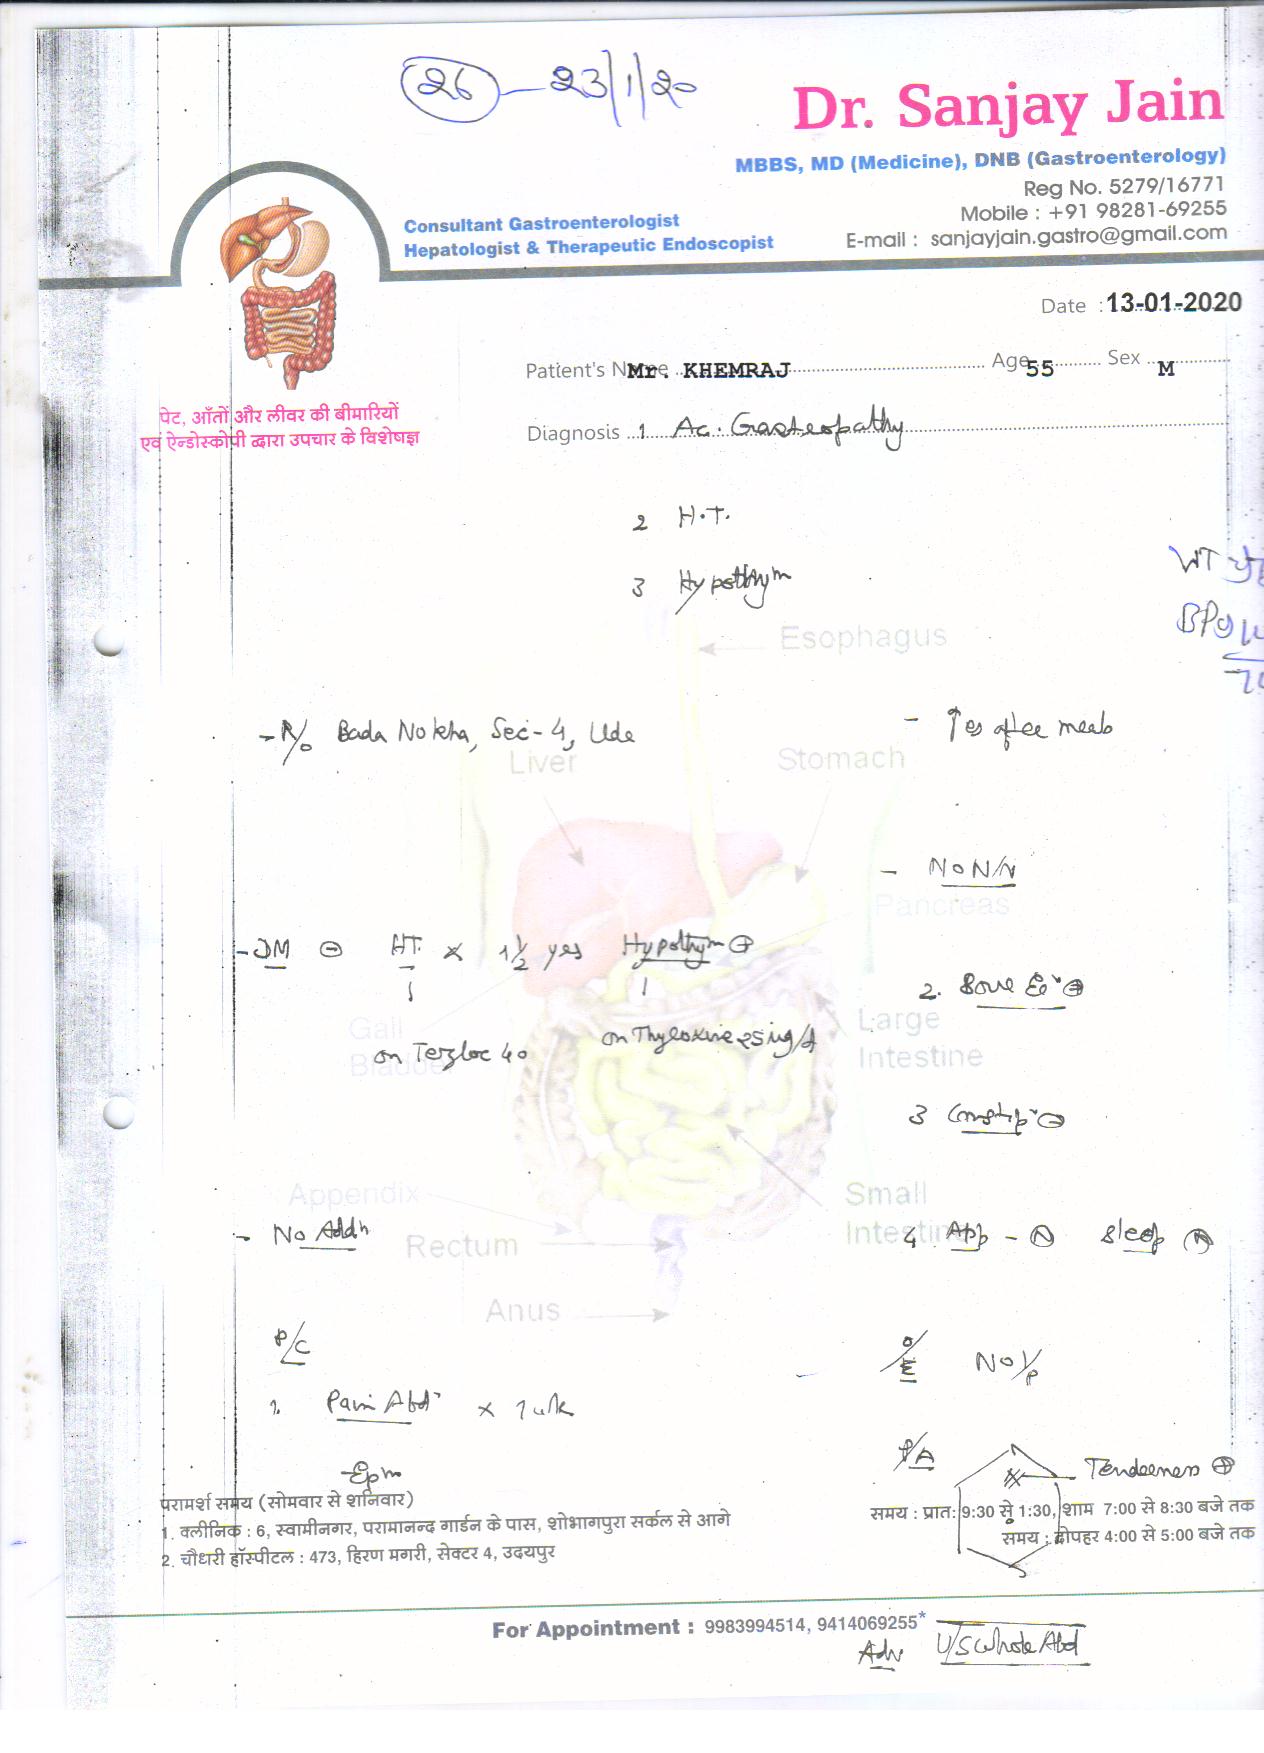 26 — 23/1/20
Dr. Sanjay Jain
MBBS, MD (Medicine), DNB (Gastroenterology)
Reg No. 5279/16771
Mobile : +91 98281-69255
E-mail : sanjayjain.gastro@gmail.com
Consultant Gastroenterologist
Hepatologist & Therapeutic Endoscopist
Date : 13-01-2020
Patient's Name Mr. KHEMRAJ Age 55 Sex M
पेट, आँतों और लीवर की बीमारियों
एवं ऐन्डोस्कोपी द्वारा उपचार के विशेषज्ञ
Diagnosis 1 Ac. Gastropathy
2 H.T.
3 Hypothym
WT
BP
Esophagus
- R/o Bada Nokha, Sec-4, Ude
- ↑es after meals
Liver
Stomach
- No N/V
Pancreas
- DM ⊖ HT. x 1½ yrs Hypothym ⊕
2.
Gall
Bladder
Large
Intestine
on Tezloc 40
on Thyroxine 25 ug/d
3 Constipn ⊖
Appendix
Small
Intestine
- No Addn
Rectum
4. App - N Sleep N
Anus
P/C
O/E
1. Pain Abd x 1 wk
P/A
Tenderness ⊕
परामर्श समय (सोमवार से शनिवार)
1. क्लीनिक : 6, स्वामीनगर, परमानन्द गार्डन के पास, शोभागपुरा सर्कल से आगे
समय : प्रात: 9:30 से 1:30, शाम 7:00 से 8:30 बजे तक
2. चौधरी हॉस्पीटल : 473, हिरण मगरी, सेक्टर 4, उदयपुर
समय : दोपहर 4:00 से 5:00 बजे तक
For Appointment : 9983994514, 9414069255*
Adv U/S Whole Abd